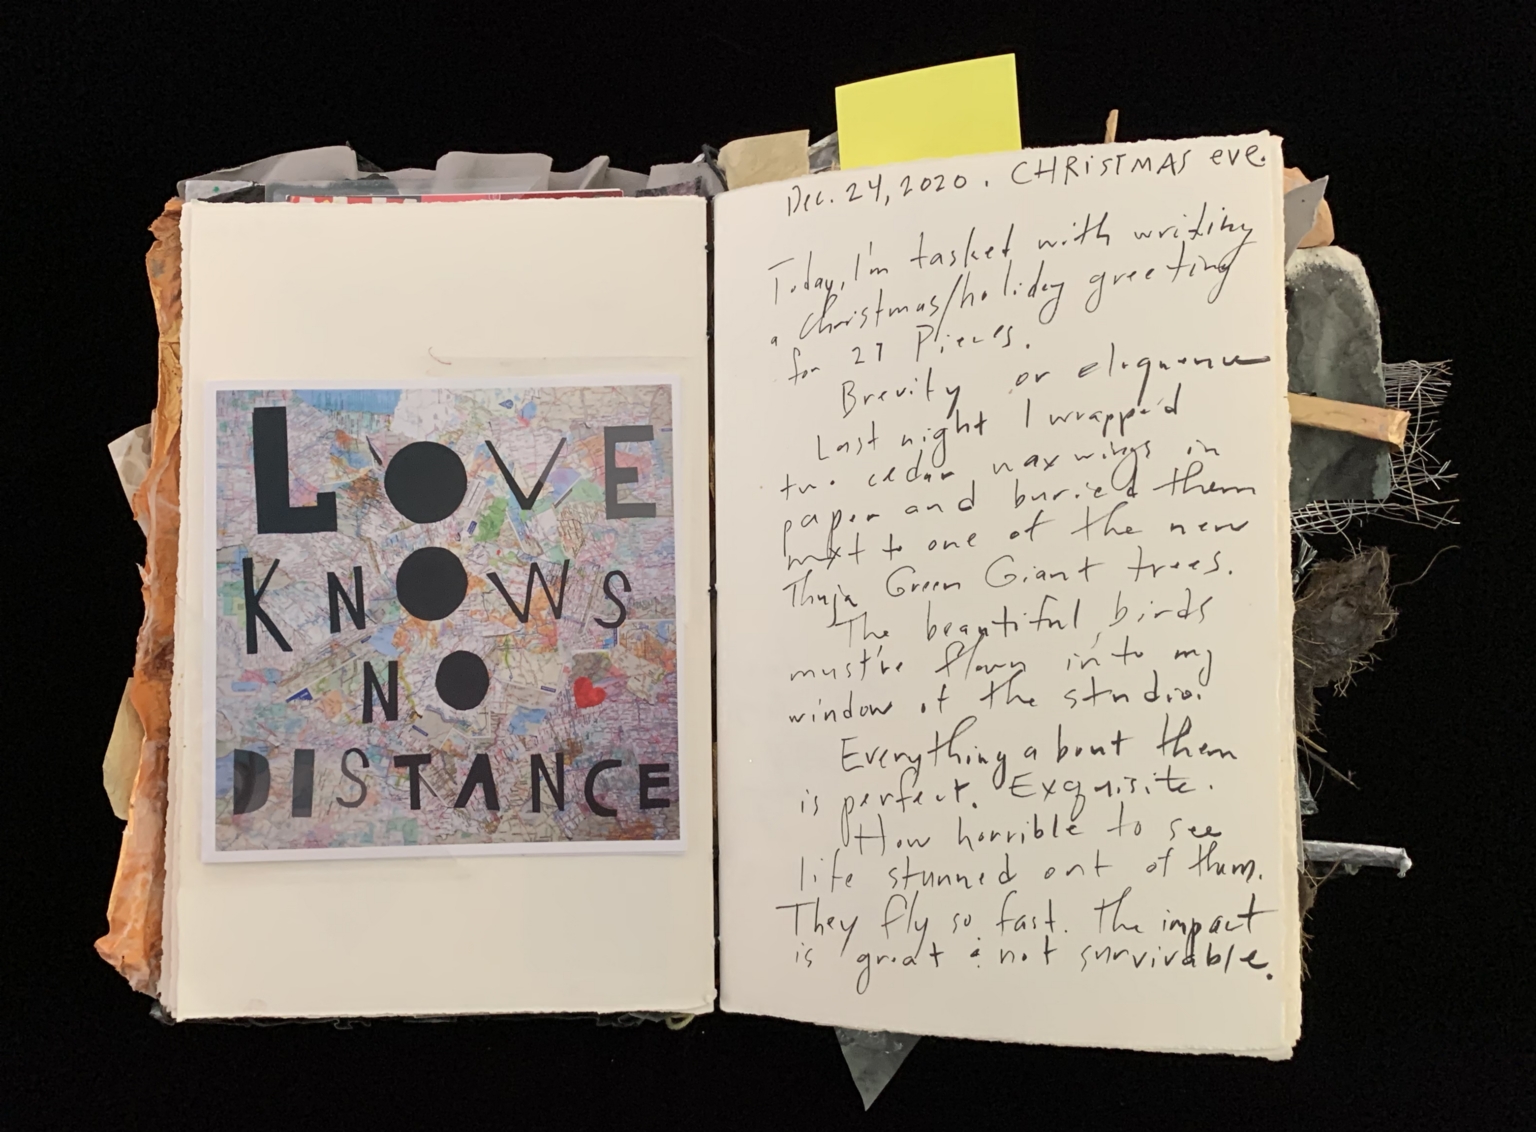 LOVE
KNOWS
NO
DISTANCE
Dec. 24, 2020. CHRISTMAS eve.
Today, I'm tasked with writing
a Christmas/holiday greeting
for 27 Pieces.
Brevity or eloquence
Last night I wrapped
two cedar waxwings in
paper and buried them
next to one of the new
Thuja Green Giant trees.
The beautiful birds
must've flown into my
window of the studio.
Everything about them
is perfect. Exquisite.
How horrible to see
life stunned out of them.
They fly so fast. The impact
is great & not survivable.